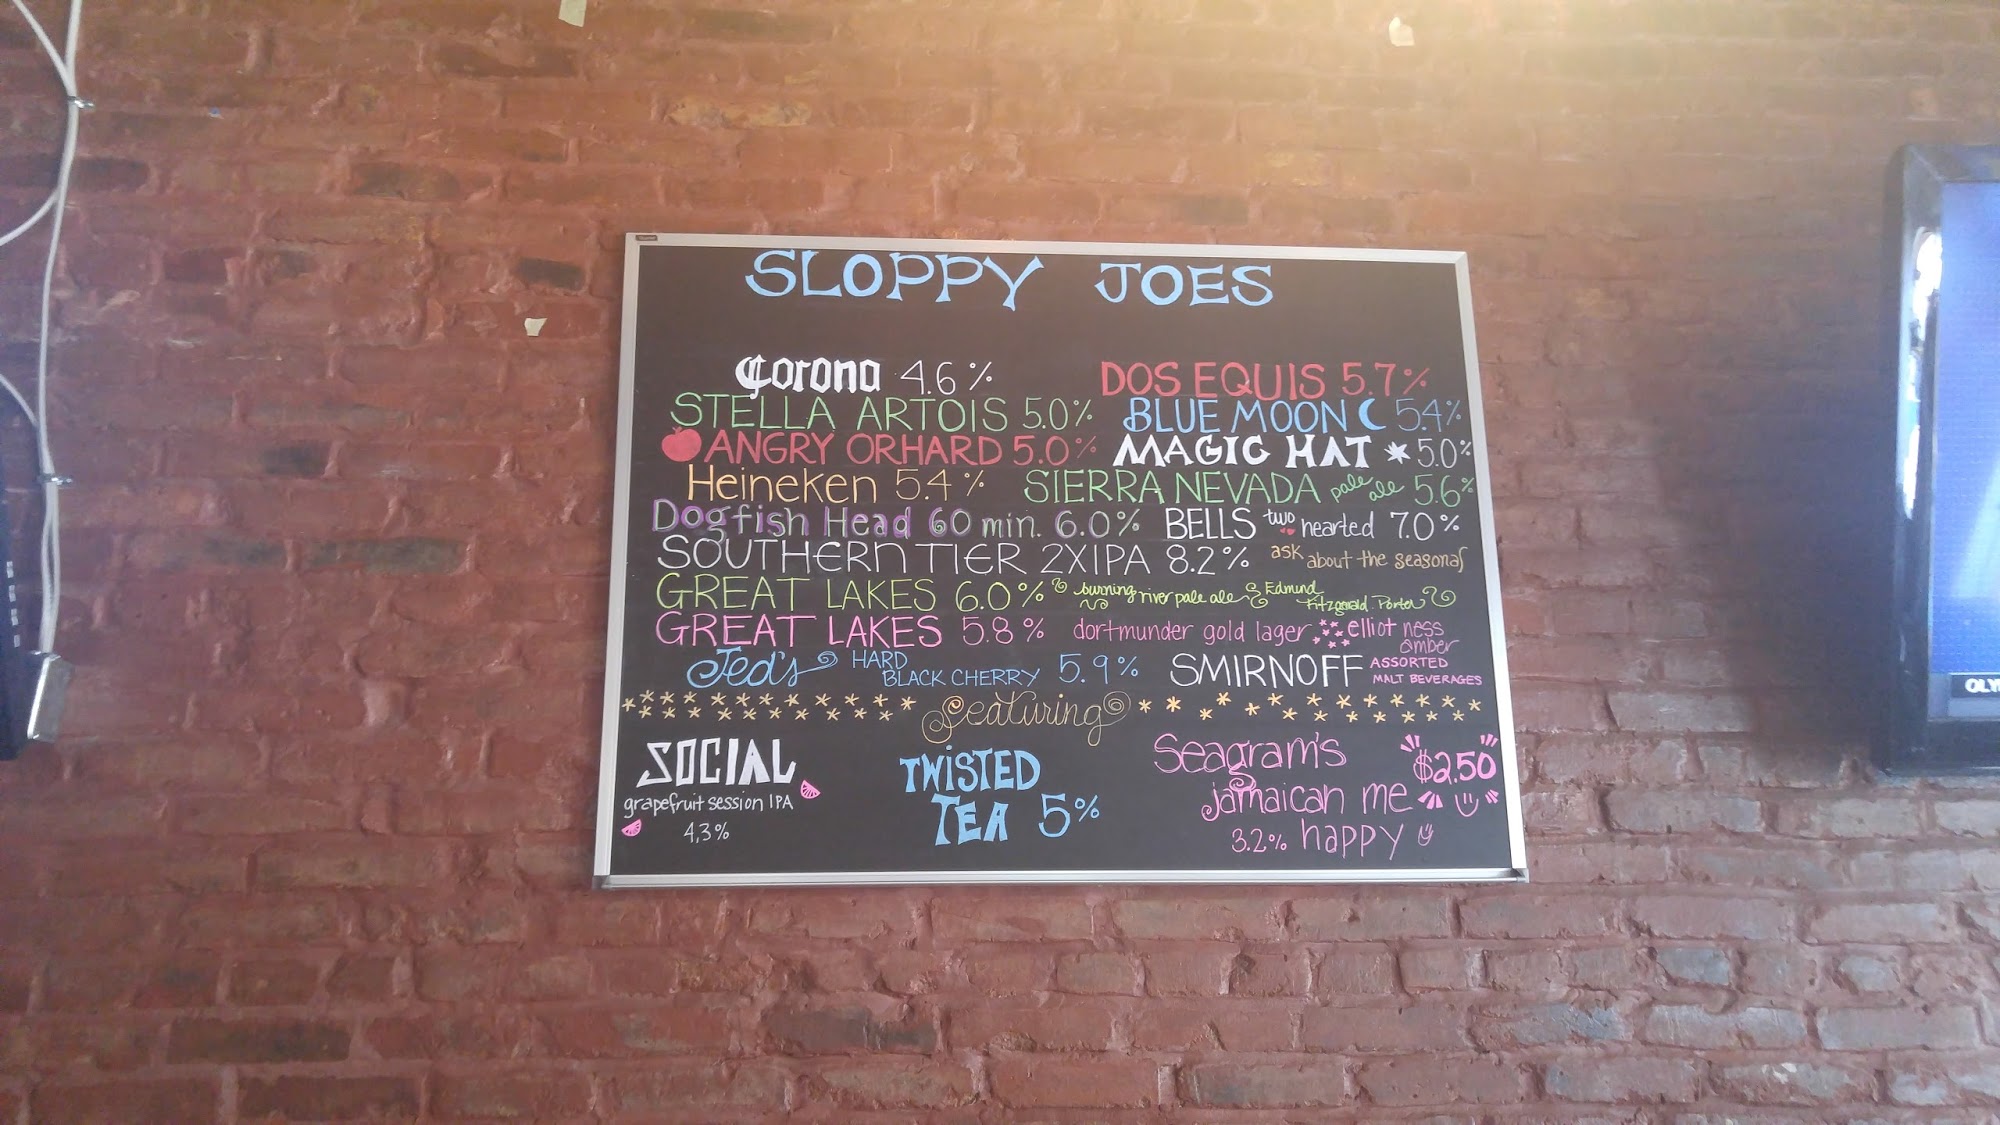 SLOPPY JOES
Corona 4.6% DOS EQUIS 5.7%
STELLA ARTOIS 5.0% BLUE MOON 5.4%
ANGRY ORHARD 5.0% MAGIC HAT 5.0%
Heineken 5.4% SIERRA NEVADA pale ale 5.6%
Dogfish Head 60 min. 6.0% BELLS two hearted 7.0%
SOUTHERN TIER 2XIPA 8.2% ask about the seasonals
GREAT LAKES 6.0% burning river pale ale Edmund Fitzgerald Porter
GREAT LAKES 5.8% dortmunder gold lager elliot ness amber
Jed's HARD BLACK CHERRY 5.9% SMIRNOFF ASSORTED MALT BEVERAGES
featuring
SOCIAL
grapefruit session IPA
4,3%
TWISTED
TEA 5%
Seagram's $2.50
jamaican me
3.2% happy
OLY